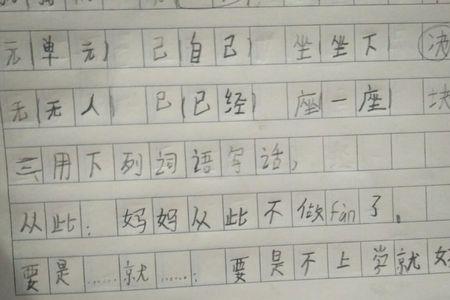 元(单元) 己(自己) 坐(坐下) (决
无(无人) 已(已经) 座(一座) 块
三用下列词语写话,
从此: 妈妈从此不做fàn了。
要是……就……: 要是不上学就好